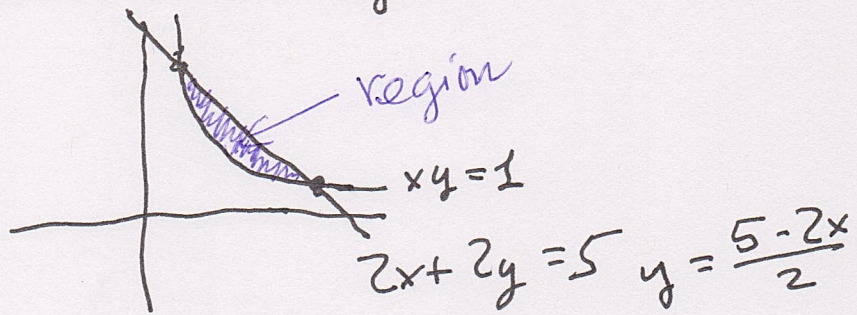 region
xy = 1
2x + 2y = 5 y = \frac{5 - 2x}{2}